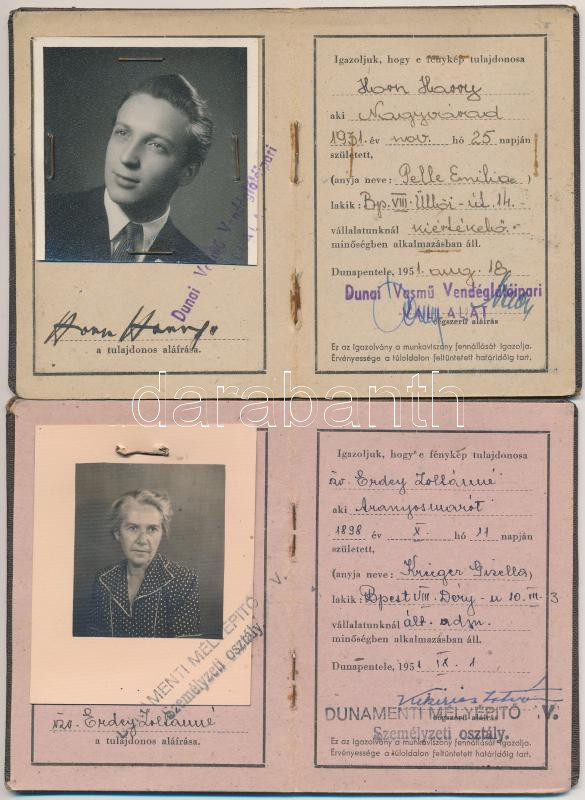 Igazoljuk, hogy e fénykép tulajdonosa
Horn Harry
aki Nagyvárad
1931. év nov. hó 25 napján
született,
(anyja neve: Pelle Emilia)
lakik: Bp. VIII. Üllői-út 14.
vállalatunknál kiértékelő
minőségben alkalmazásban áll.
Dunapentele, 1951. aug 18
Dunai Vasmű Vendéglátóipari
VÁLLALAT
cégszerű aláírás
Ez az Igazolvány a munkaviszony fennállását igazolja.
Érvényessége a túloldalon feltüntetett határidőig tart.
Dunai Vasmű Vendéglátóipari
Horn Harry
a tulajdonos aláírása.
darabanth
Igazoljuk, hogy e fénykép tulajdonosa
özv. Erdey Zoltánné
aki Aranyosmarót
1898 év X. hó 11 napján
született,
(anyja neve: Krieger Gizella)
lakik: Bpest VIII. Déry-u 10. III. 3
vállalatunknál ált. adm.
minőségben alkalmazásban áll.
Dunapentele, 1951 IX. 1
DUNAMENTI MÉLYÉPITŐ V.
cégszerű aláírás
Személyzeti osztály.
Ez az Igazolvány a munkaviszony fennállását igazolja.
Érvényessége a túloldalon feltüntetett határidőig tart.
MENTI MÉLYÉPITŐ V.
Személyzeti osztály.
özv. Erdey Zoltánné
a tulajdonos aláírása.